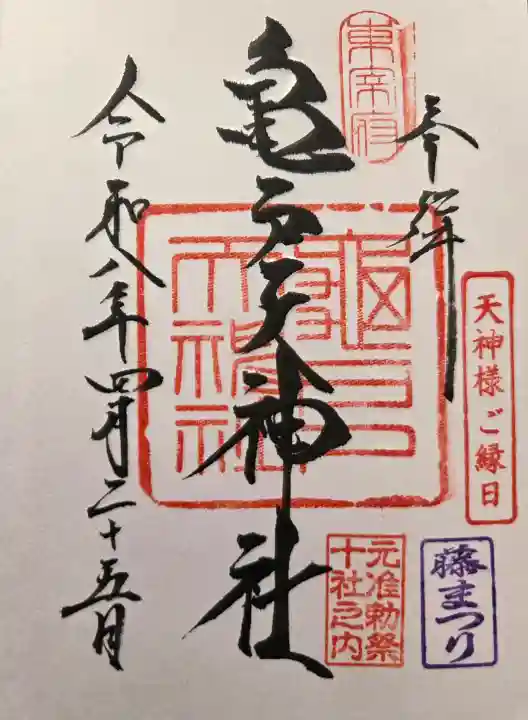 奉拝
東宰府
天神様ご縁日
亀戸天神社
亀戸天神社
元准勅祭
十社之内
藤まつり
令和八年四月二十五日